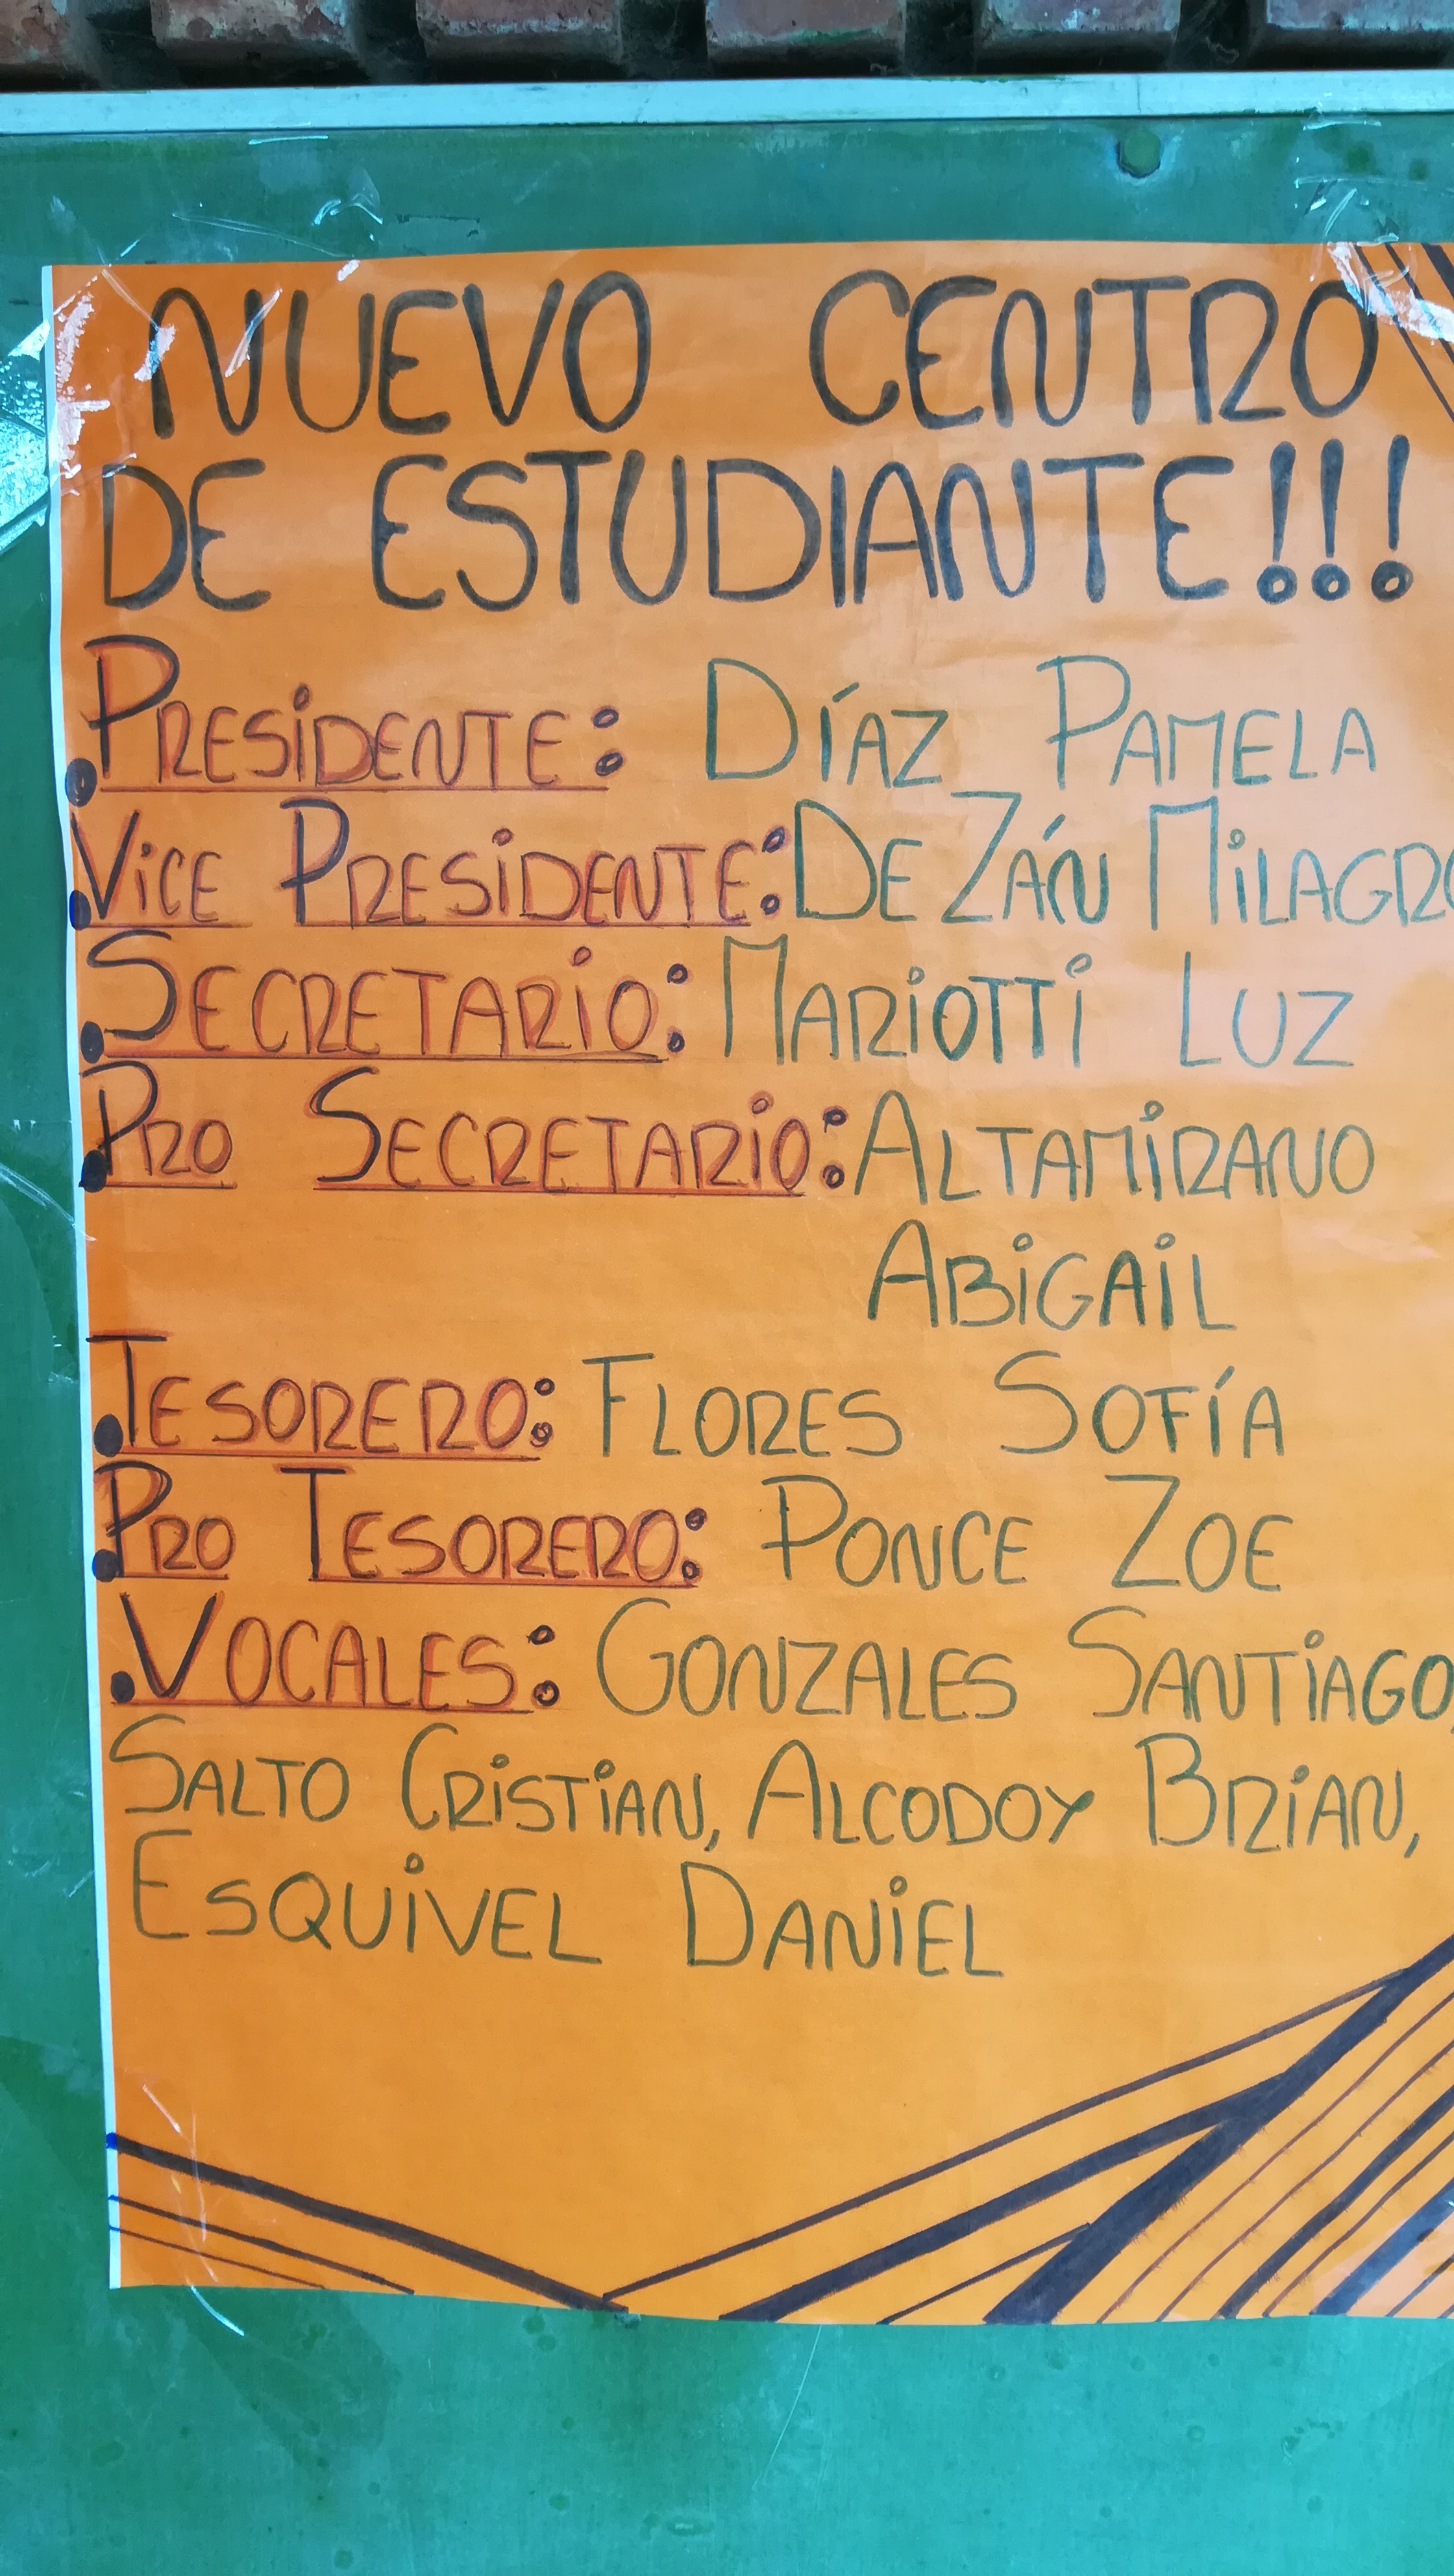 NUEVO CENTRO
DE ESTUDIANTE!!!
.PRESiDENTE: DÍAZ PAMELA
.ViCE PRESiDENTE: DE ZÁN MiLAGRO
.SECRETARiO: MARiOTTi LUZ
.PRO SECRETARiO: ALTAMiRANO
ABiGAiL
.TESORERO: FLORES SOFÍA
.PRO TESORERO: PONCE ZOE
.VOCALES: GONZALES SANTiAGO,
SALTO CRiSTiAN, ALCODOY BRiAN,
ESQUiVEL DANiEL